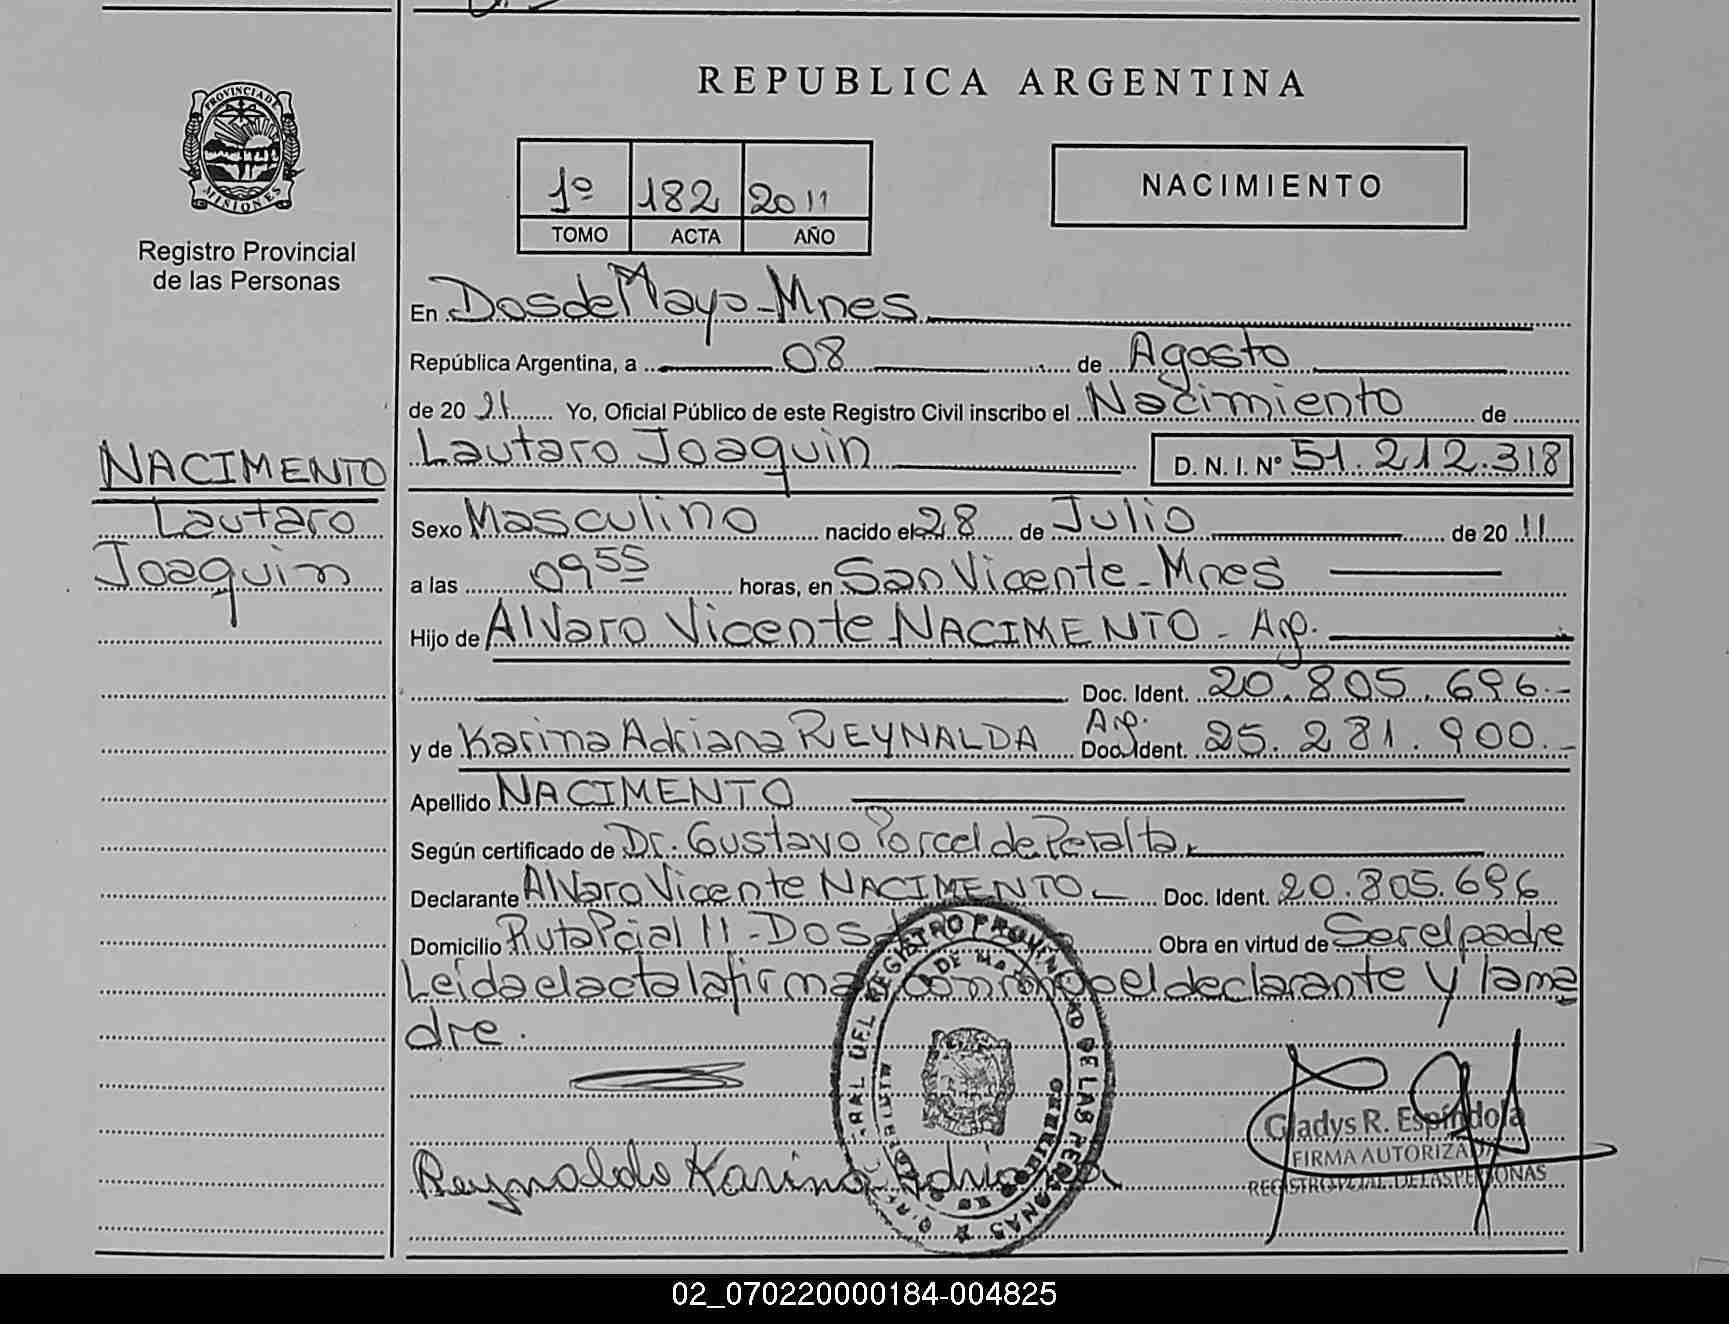 REPUBLICA ARGENTINA
PROVINCIA DE
MISIONES
Registro Provincial
de las Personas
1º 182 2011
TOMO ACTA AÑO
NACIMIENTO
En Dos de Mayo - Mnes
República Argentina, a 08 de Agosto
de 20 11 Yo, Oficial Público de este Registro Civil inscribo el Nacimiento de
Lautaro Joaquin D. N. I. Nº 51.212.318
NACIMENTO
Lautaro
Joaquin
Sexo Masculino nacido el 28 de Julio de 20 11
a las 09 55 horas, en San Vicente - Mnes
Hijo de Alvaro Vicente NACIMENTO - Arg.
Doc. Ident. 20.805.696.-
y de Karina Adriana REYNALDA Arg. Doc. Ident. 25.281.900.-
Apellido NACIMENTO
Según certificado de Dr. Gustavo Porcel de Peralta.
Declarante Alvaro Vicente NACIMENTO - Doc. Ident. 20.805.696
Domicilio Ruta Pcial 11 - Dos Obra en virtud de Ser el padre
Leida el acta la firma conmigo el declarante y la ma
dre.
REGISTRO PROVINCIAL DE LAS PERSONAS
Gladys R. Espíndola
FIRMA AUTORIZADA
REGISTRO PCIAL. DE LAS PERSONAS
Reynaldo Karina Adriana
02_070220000184-004825